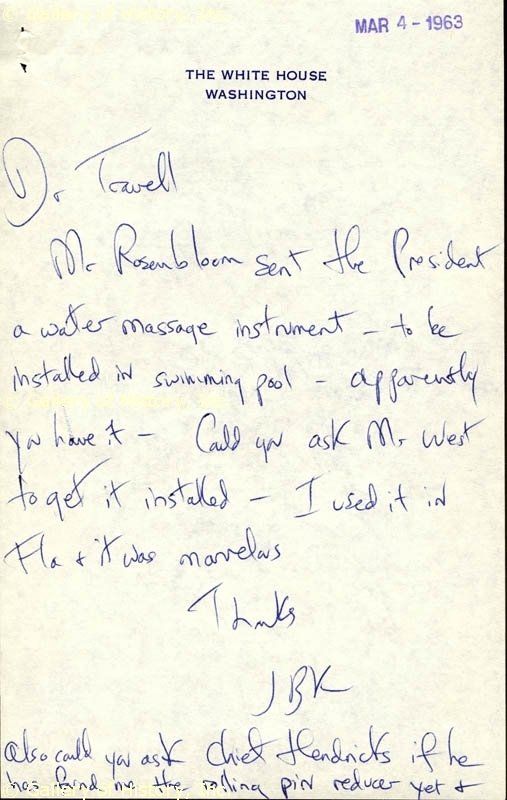 © Gallery of History, Inc.
MAR 4 - 1963
THE WHITE HOUSE
WASHINGTON
Dr. Travell
Mr Rosenbloom sent the President
a water massage instrument - to be
installed in swimming pool - apparently
you have it - Could you ask Mr West
to get it installed - I used it in
Fla + it was marvelous
Thanks
JBK
also could you ask Chief Hendricks if he
has found me the rolling pin reducer yet +
© Gallery of History, Inc.